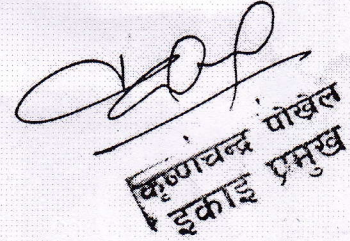 कृष्णचन्द्र पोखेल
इकाइ प्रमुख